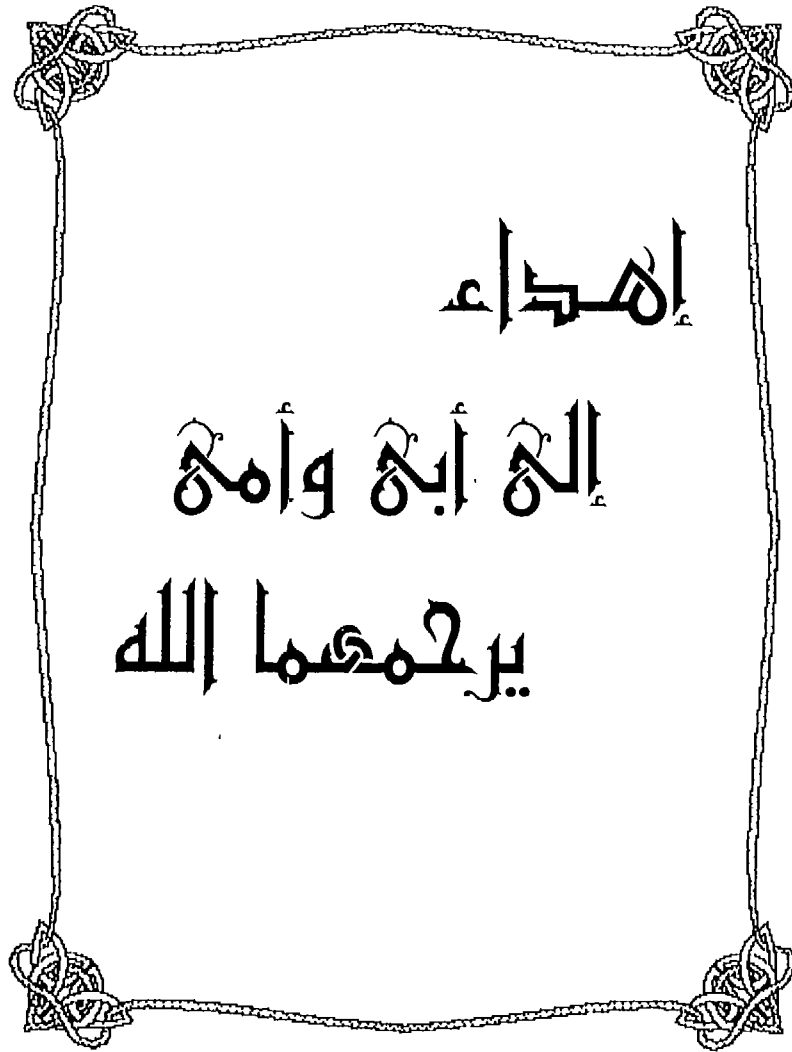 إهداء
إلى أبى وأمى
يرحمهما الله